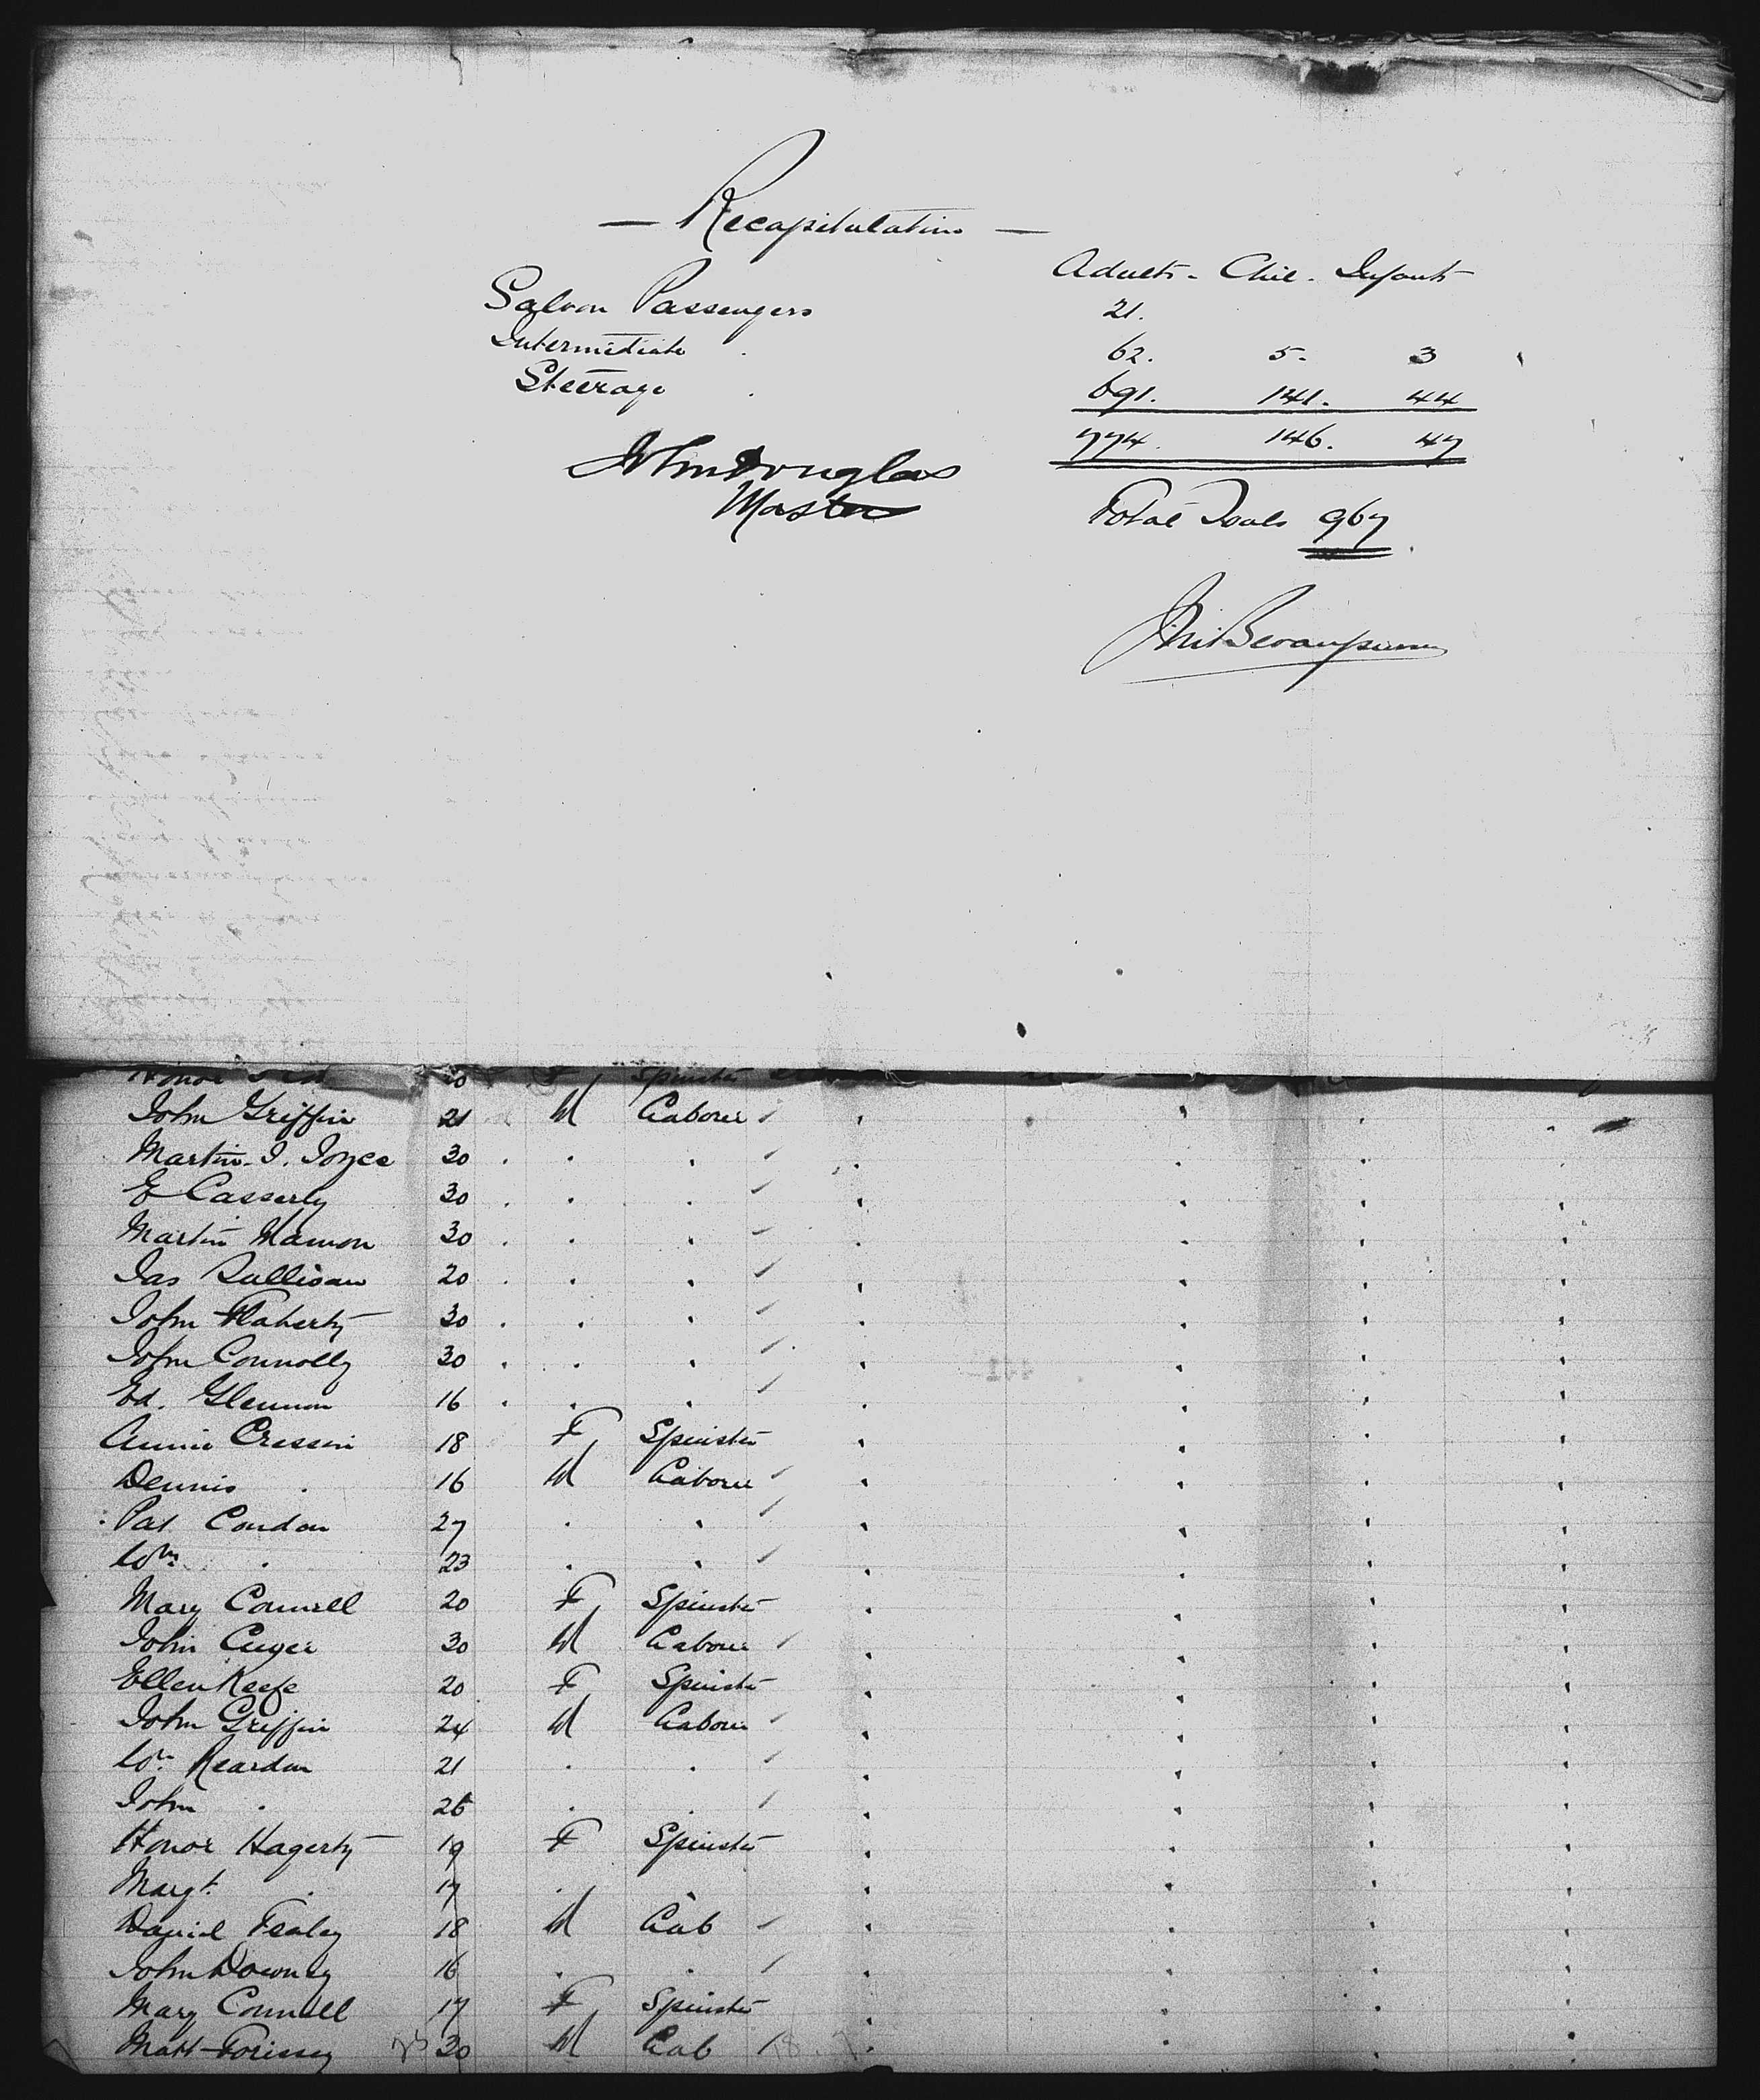 — Recapitulation —
Adults - Chil. Infants
Saloon Passengers 21.
Intermediate . 62. 5. 3
Steerage . 691. 141. 44
774. 146. 47
John Douglas
Master
Total Souls 967
Honor 20 F Spinster
John Griffin 21 M Laborer
Martin J. Joyce 30 . . .
E Casserly 30 . . .
Martin Mannon 30 . . .
Jas Sullivan 20 . . .
John Flaherty 30 . . .
John Connolly 30 . . .
Ed. Glennon 16 . . .
Annie 18 F Spinster
Dennis . 16 M Laborer
Pat Condon 27 . .
Wm . 23 . .
Mary Connell 20 F Spinster
John 30 M Laborer
Ellen Keefe 20 F Spinster
John Griffin 24 M Laborer
Wm Reardon 21 . .
John . 26 . .
Honor Hagerty 19 F Spinster
Margt. . 17 . .
Daniel Fealey 18 M Lab
John Downey 16 . .
Mary Connell 17 F Spinster
Matt 30 M Lab